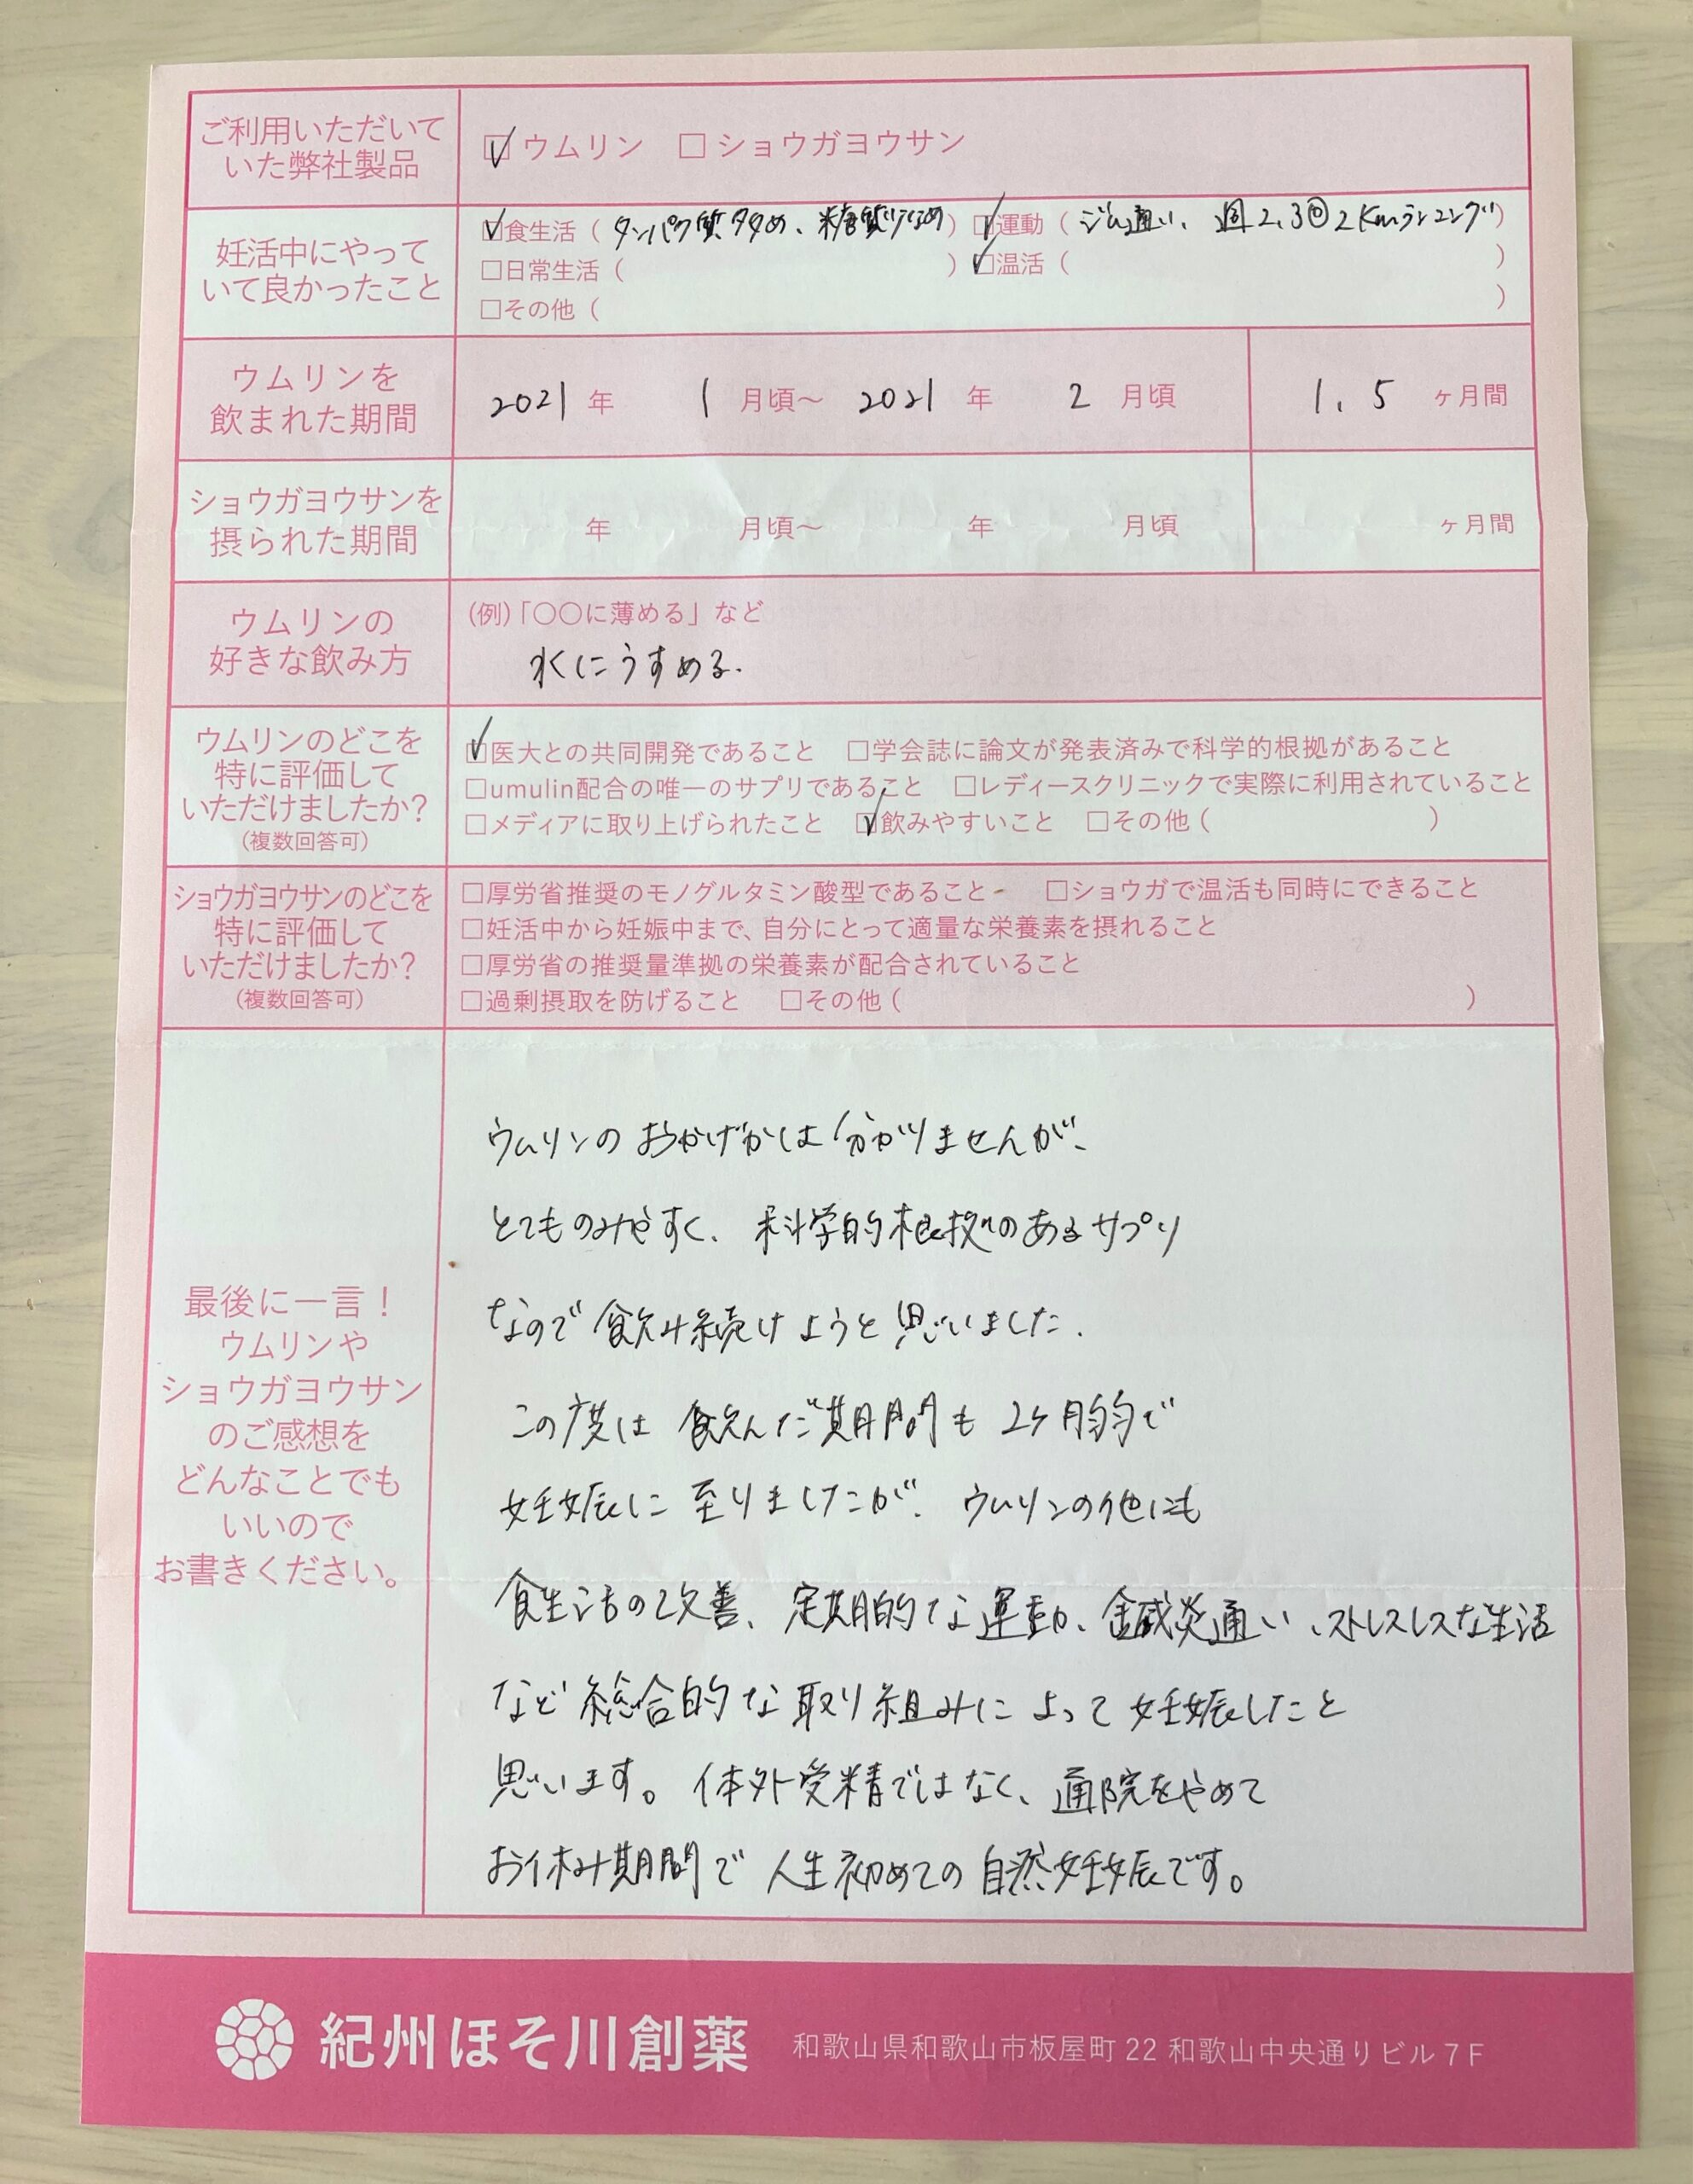 ご利用いただいて
いた弊社製品
☑ウムリン □ショウガヨウサン
妊活中にやって
いて良かったこと
☑食生活（タンパク質多め、糖質少なめ）☑運動（ジム通い、週2、3回2Kmランニング）
□日常生活（ ）☑温活（ ）
□その他（ ）
ウムリンを
飲まれた期間
2021年 1月頃〜2021年 2月頃 1.5ヶ月間
ショウガヨウサンを
摂られた期間
年 月頃〜 年 月頃 ヶ月間
ウムリンの
好きな飲み方
(例)「〇〇に薄める」など
水にうすめる.
ウムリンのどこを
特に評価して
いただけましたか?
(複数回答可)
☑医大との共同開発であること □学会誌に論文が発表済みで科学的根拠があること
□umulin配合の唯一のサプリであること □レディースクリニックで実際に利用されていること
□メディアに取り上げられたこと ☑飲みやすいこと □その他（ ）
ショウガヨウサンのどこを
特に評価して
いただけましたか?
(複数回答可)
□厚労省推奨のモノグルタミン酸型であること □ショウガで温活も同時にできること
□妊活中から妊娠中まで、自分にとって適量な栄養素を摂れること
□厚労省の推奨量準拠の栄養素が配合されていること
□過剰摂取を防げること □その他（ ）
最後に一言！
ウムリンや
ショウガヨウサン
のご感想を
どんなことでも
いいので
お書きください。
ウムリンのおかげかは分かりませんが、
とてものみやすく、科学的根拠のあるサプリ
なので飲み続けようと思いました.
この度は飲んだ期間も2ヶ月弱で
妊娠に至りましたが、ウムリンの他にも
食生活の改善、定期的な運動、鍼灸通い、ストレスレスな生活
など総合的な取り組みによって妊娠したと
思います。体外受精ではなく、通院をやめて
お休み期間で人生初めての自然妊娠です。
紀州ほそ川創薬 和歌山県和歌山市板屋町22 和歌山中央通りビル7F